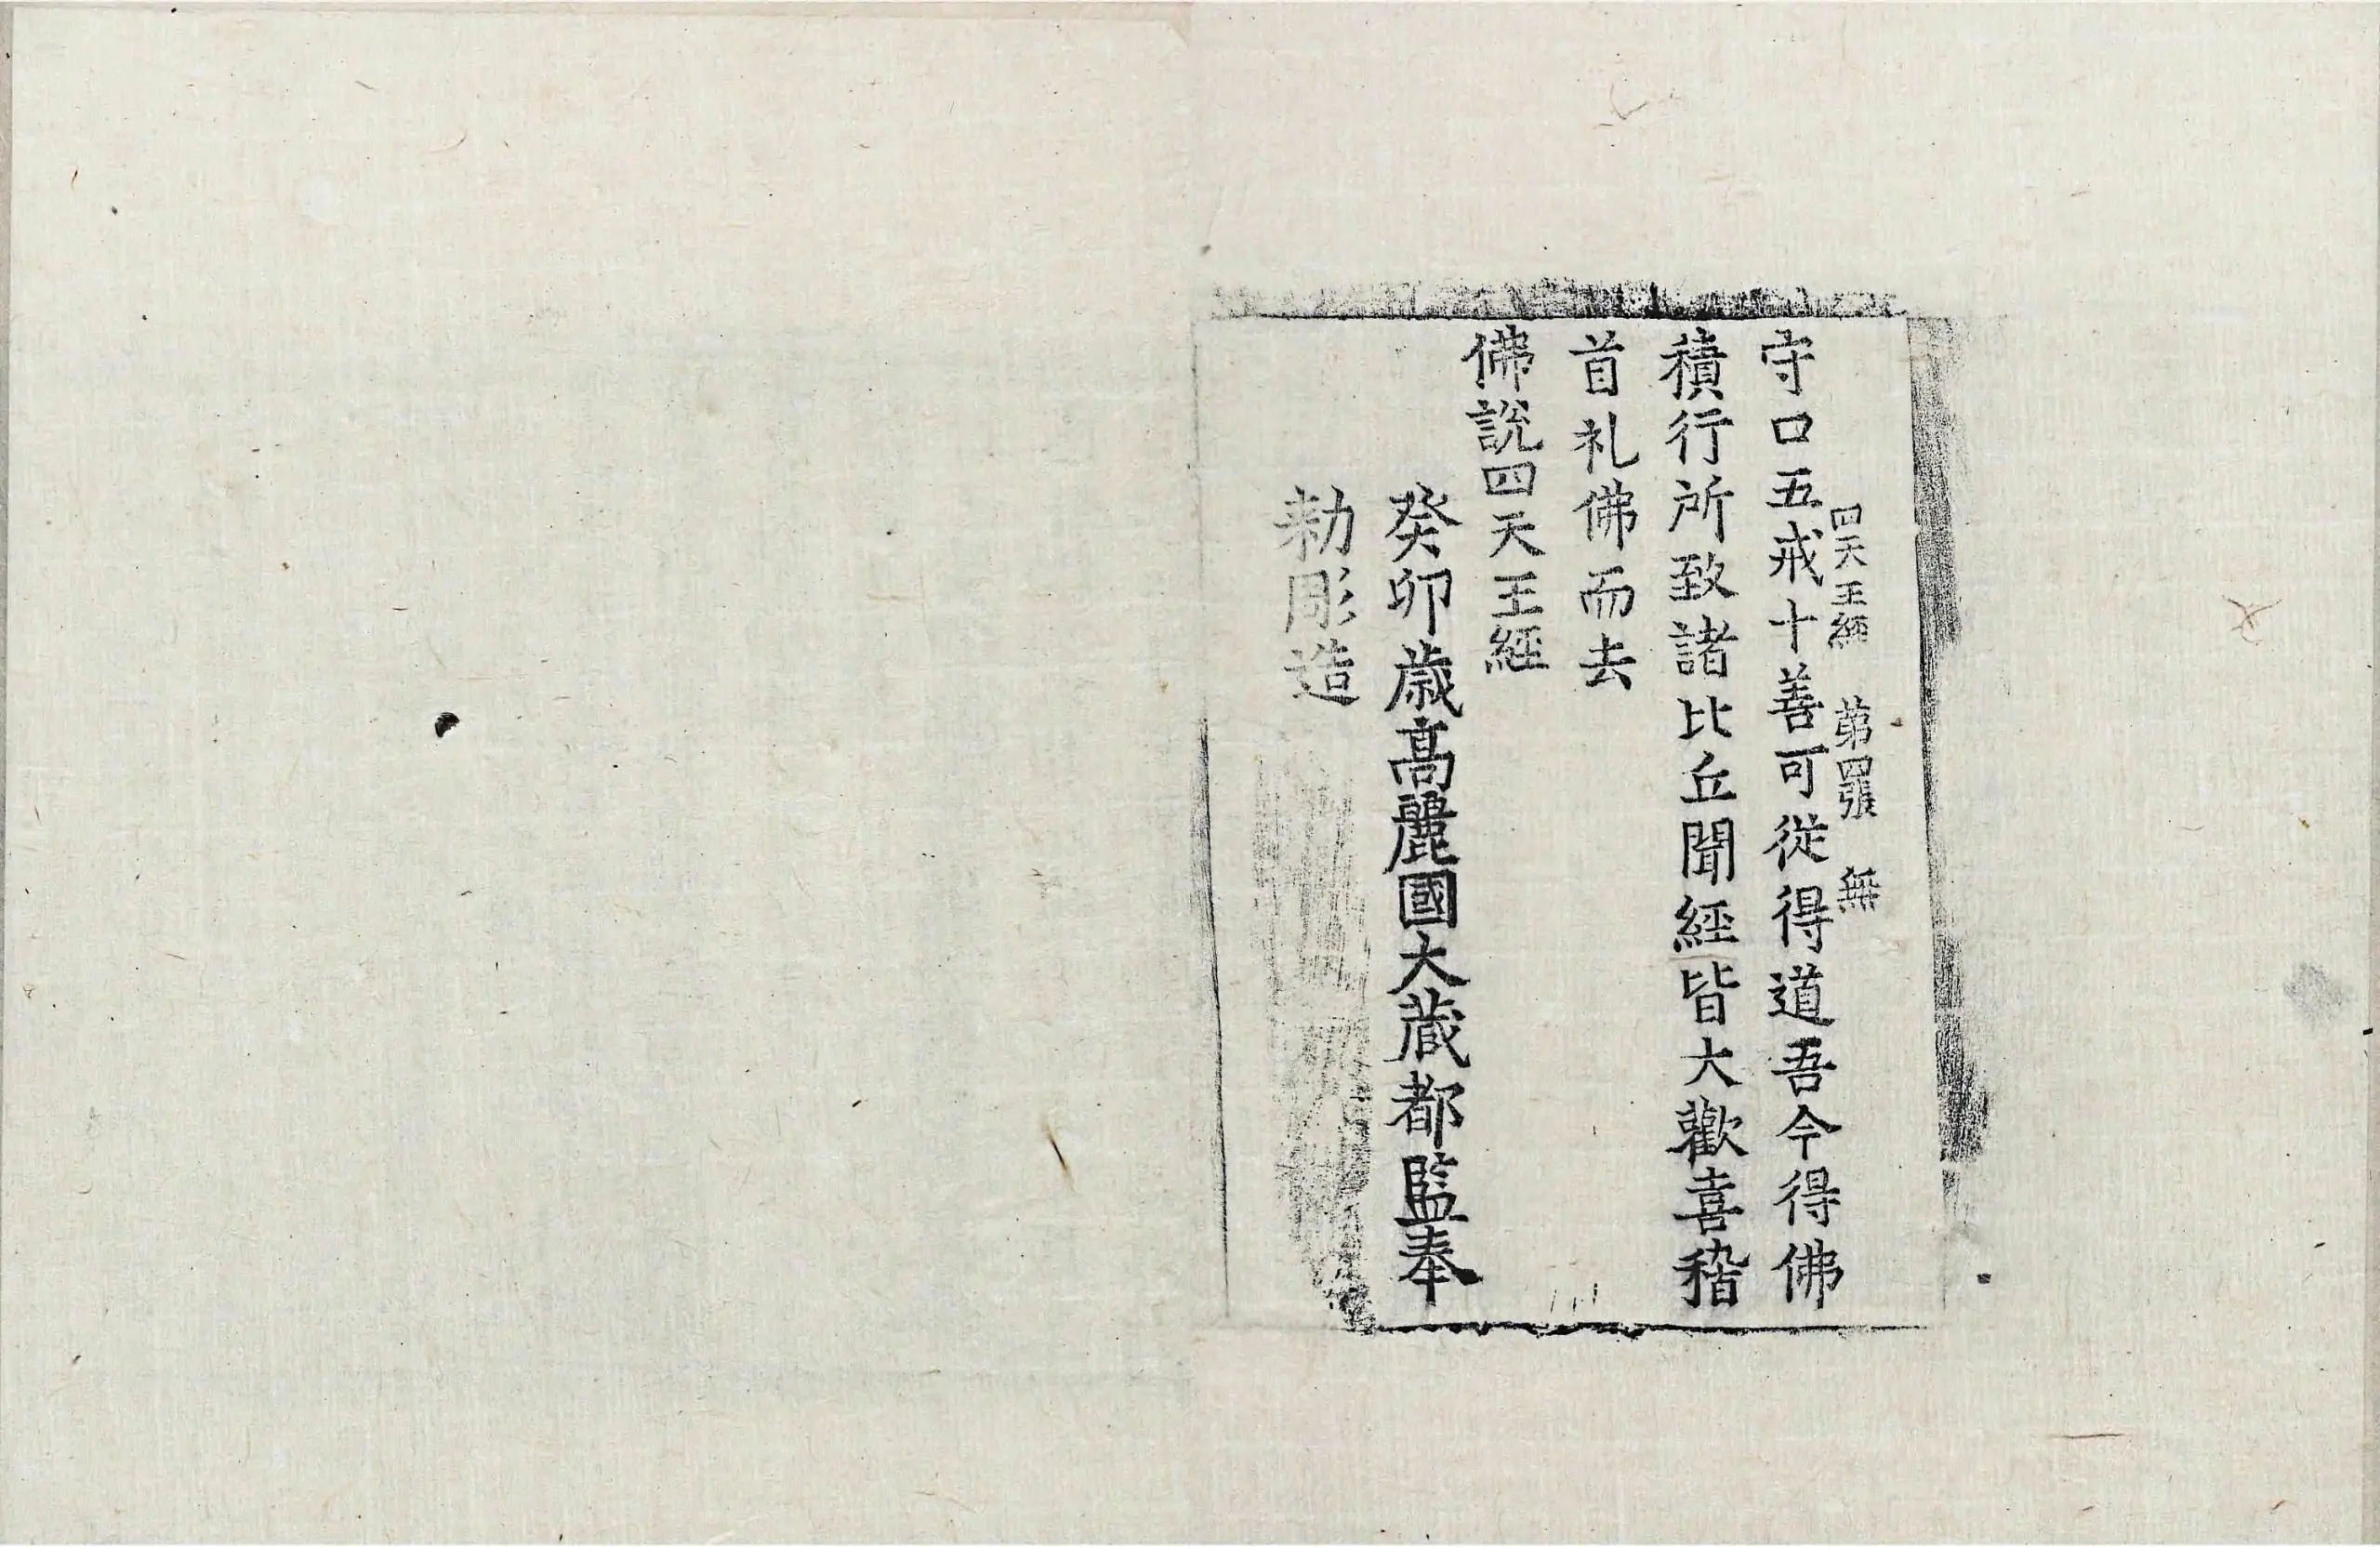 四天王經 第四張 無
守口五戒十善可從得道吾今得佛
積行所致諸比丘聞經皆大歡喜稽
首礼佛而去
佛說四天王經
癸卯歲高麗國大藏都監奉
勅彫造